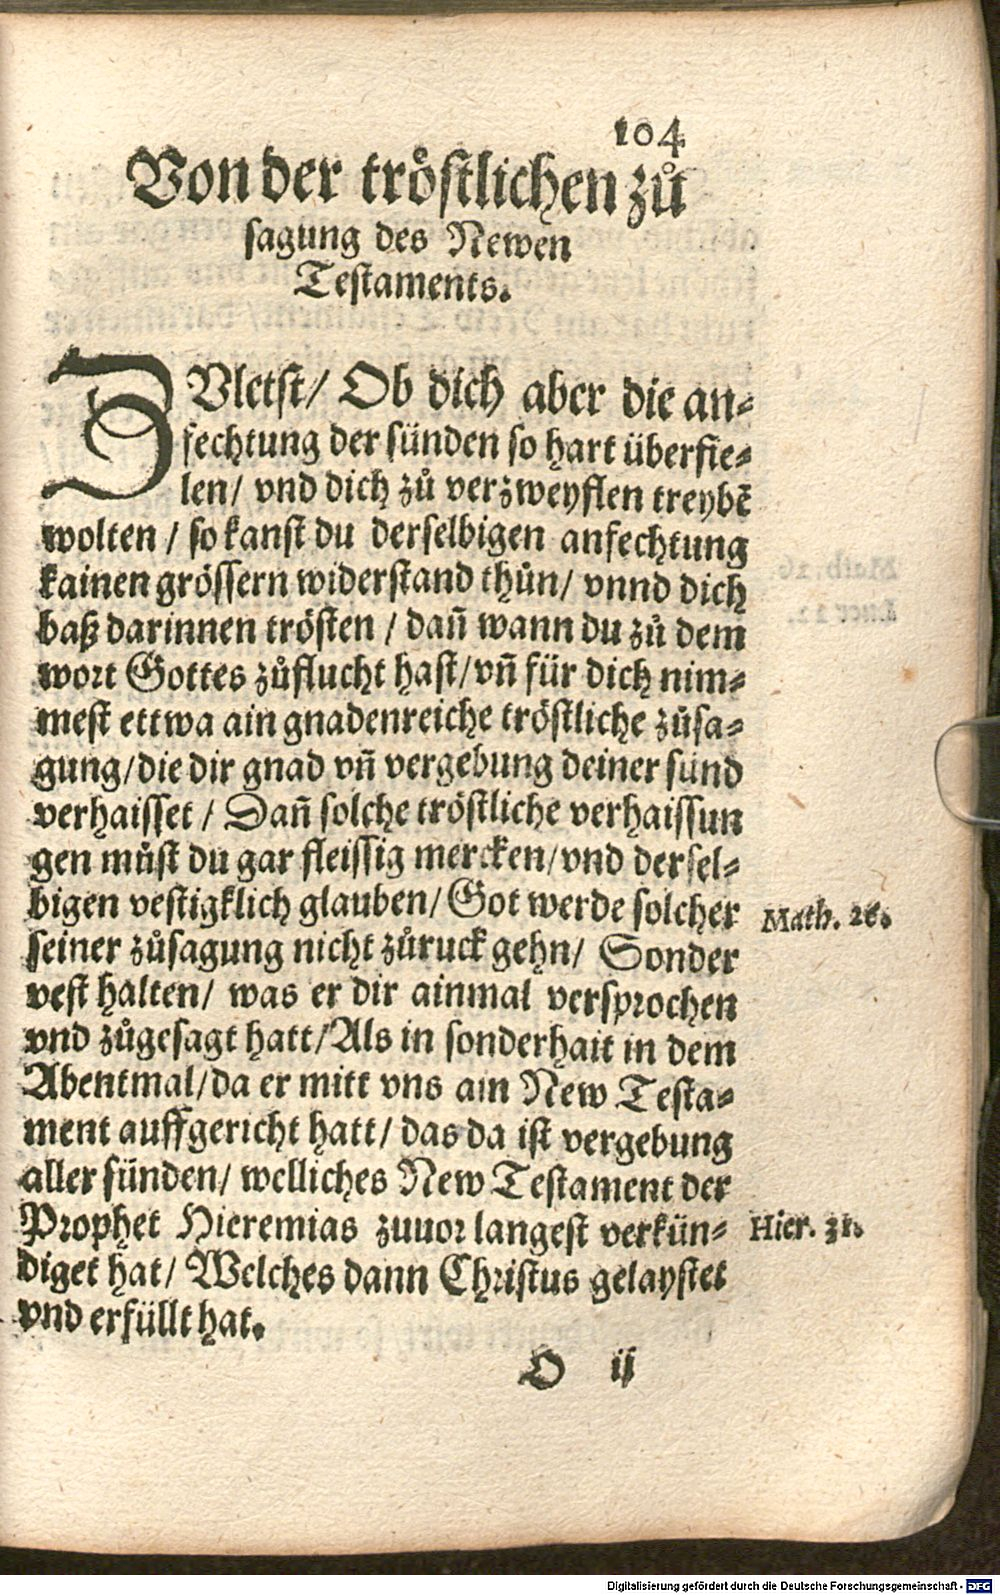 104
Von der tröstlichen zů
sagung des Newen
Testaments.
ZVletst/ Ob dich aber die an⸗
fechtung der sünden so hart überfie⸗
len/ vnd dich zů verzweyflen treybẽ
wolten / so kanst du derselbigen anfechtung
kainen grössern widerstand thůn/ vnnd dich
baß darinnen trösten / dañ wann du zů dem
wort Gottes zůflucht hast/ vñ für dich nim⸗
mest ettwa ain gnadenreiche tröstliche zůsa⸗
gung/ die dir gnad vñ vergebung deiner sünd
verhaisset / Dañ solche tröstliche verhaissun
gen můst du gar fleissig mercken/ vnd dersel⸗
bigen vestigklich glauben/ Got werde solcher
Math. 26.
seiner zůsagung nicht zůruck gehn/ Sonder
vest halten/ was er dir ainmal versprochen
vnd zůgesagt hatt/ Als in sonderhait in dem
Abentmal/ da er mitt vns ain New Testa⸗
ment auffgericht hatt/ das da ist vergebung
aller sünden/ welliches New Testament der
Prophet Hieremias zuuor langest verkün⸗
Hier. 31.
diget hat/ Welches dann Christus gelaystet
vnd erfüllt hat.
O ij
Digitalisierung gefördert durch die Deutsche Forschungsgemeinschaft - DFG